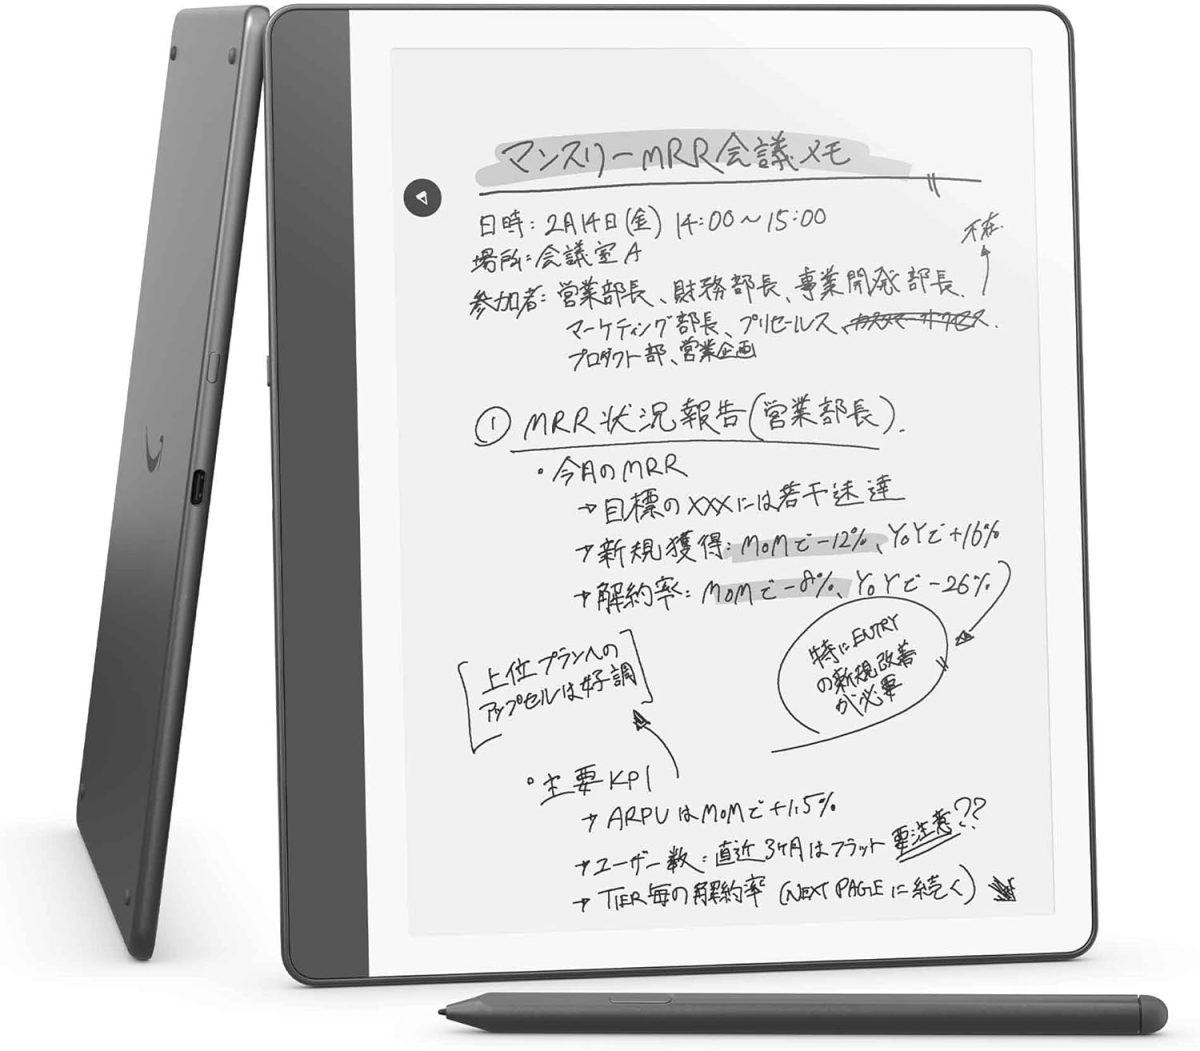 マンスリーMRR会議メモ
日時: 2月14日(金) 14:00〜15:00
不在.
場所: 会議室A
参加者: 営業部長、財務部長、事業開発部長、
マーケティング部長、プリセールス、カスタマーサクセス、
プロダクト部、営業企画
① MRR状況報告(営業部長).
・今月のMRR
→目標のXXXには若干未達
→新規獲得: MoMで-12%、YoYで+16%
→解約率: MoMで-8%、YoYで-26%
特にENTRY
の新規改善
が必要
上位プランへの
アップセルは好調
・主要KPI
→ARPUはMoMで+1.5%
→ユーザー数: 直近3ヶ月はフラット 要注意??
→TIER毎の解約率 (NEXT PAGEに続く)